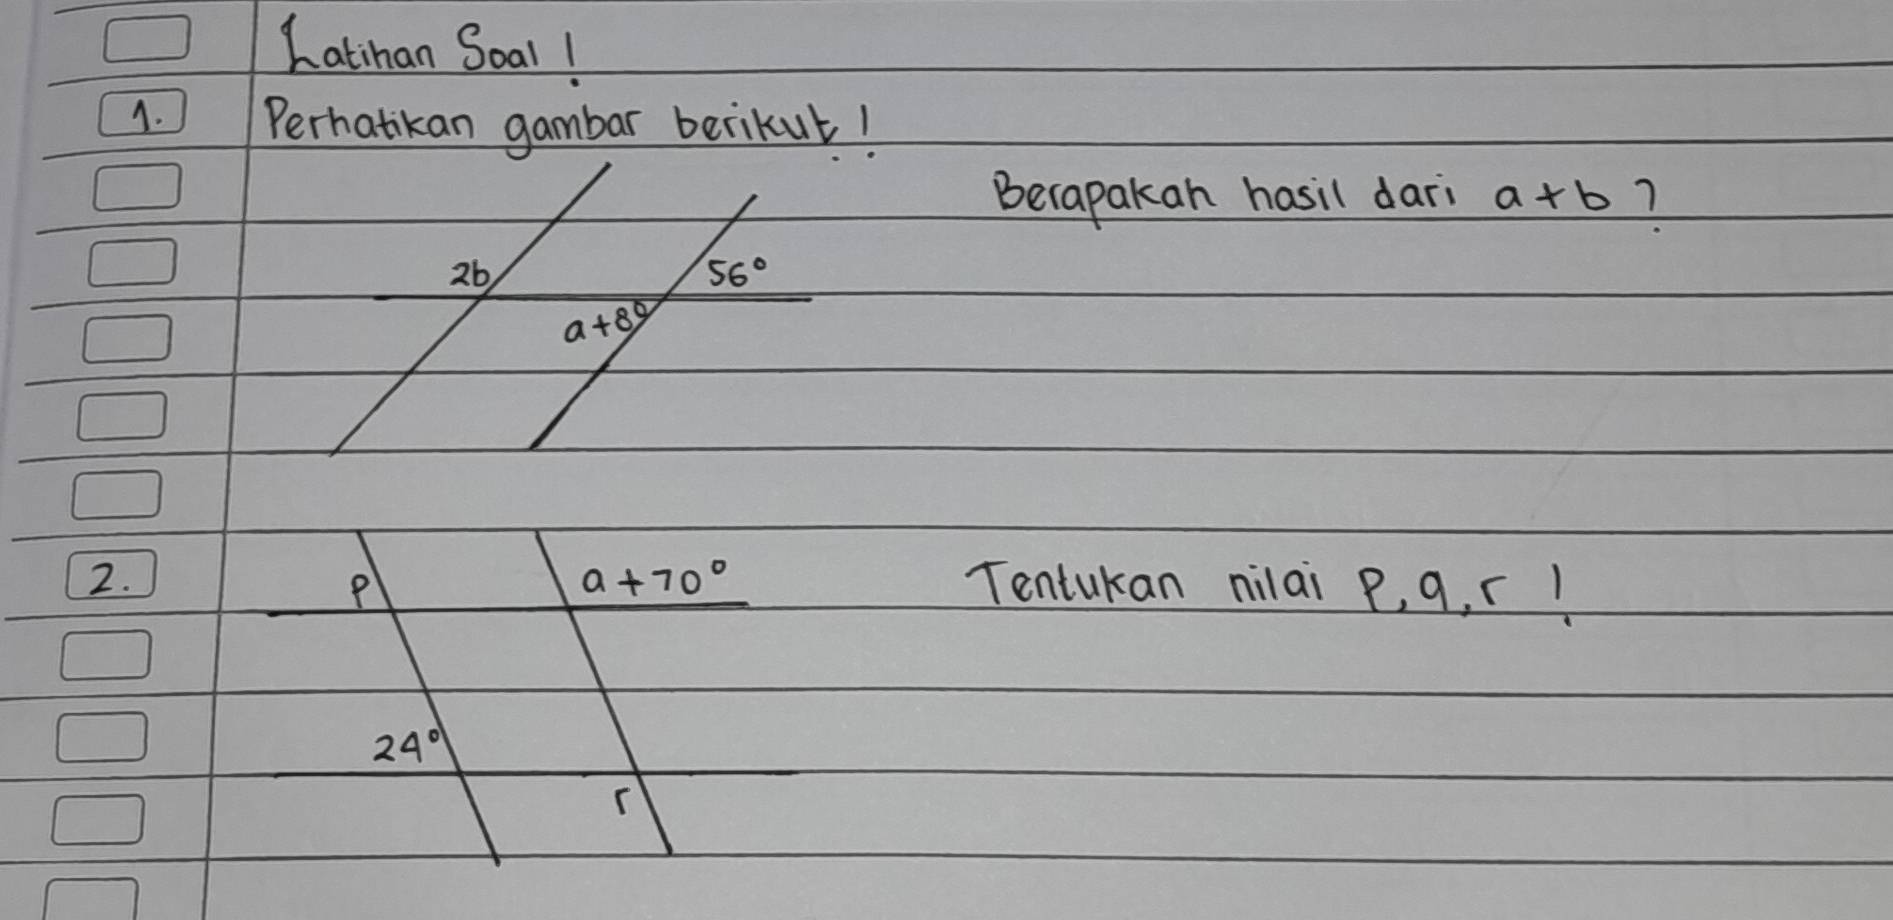 Latihan Soal!
1. Perhatikan gambar berikut!
Berapakah hasil dari a+b?
2b
56°
a+8°
2. Tentukan nilai p, q, r!
p
a+70°
24°
r